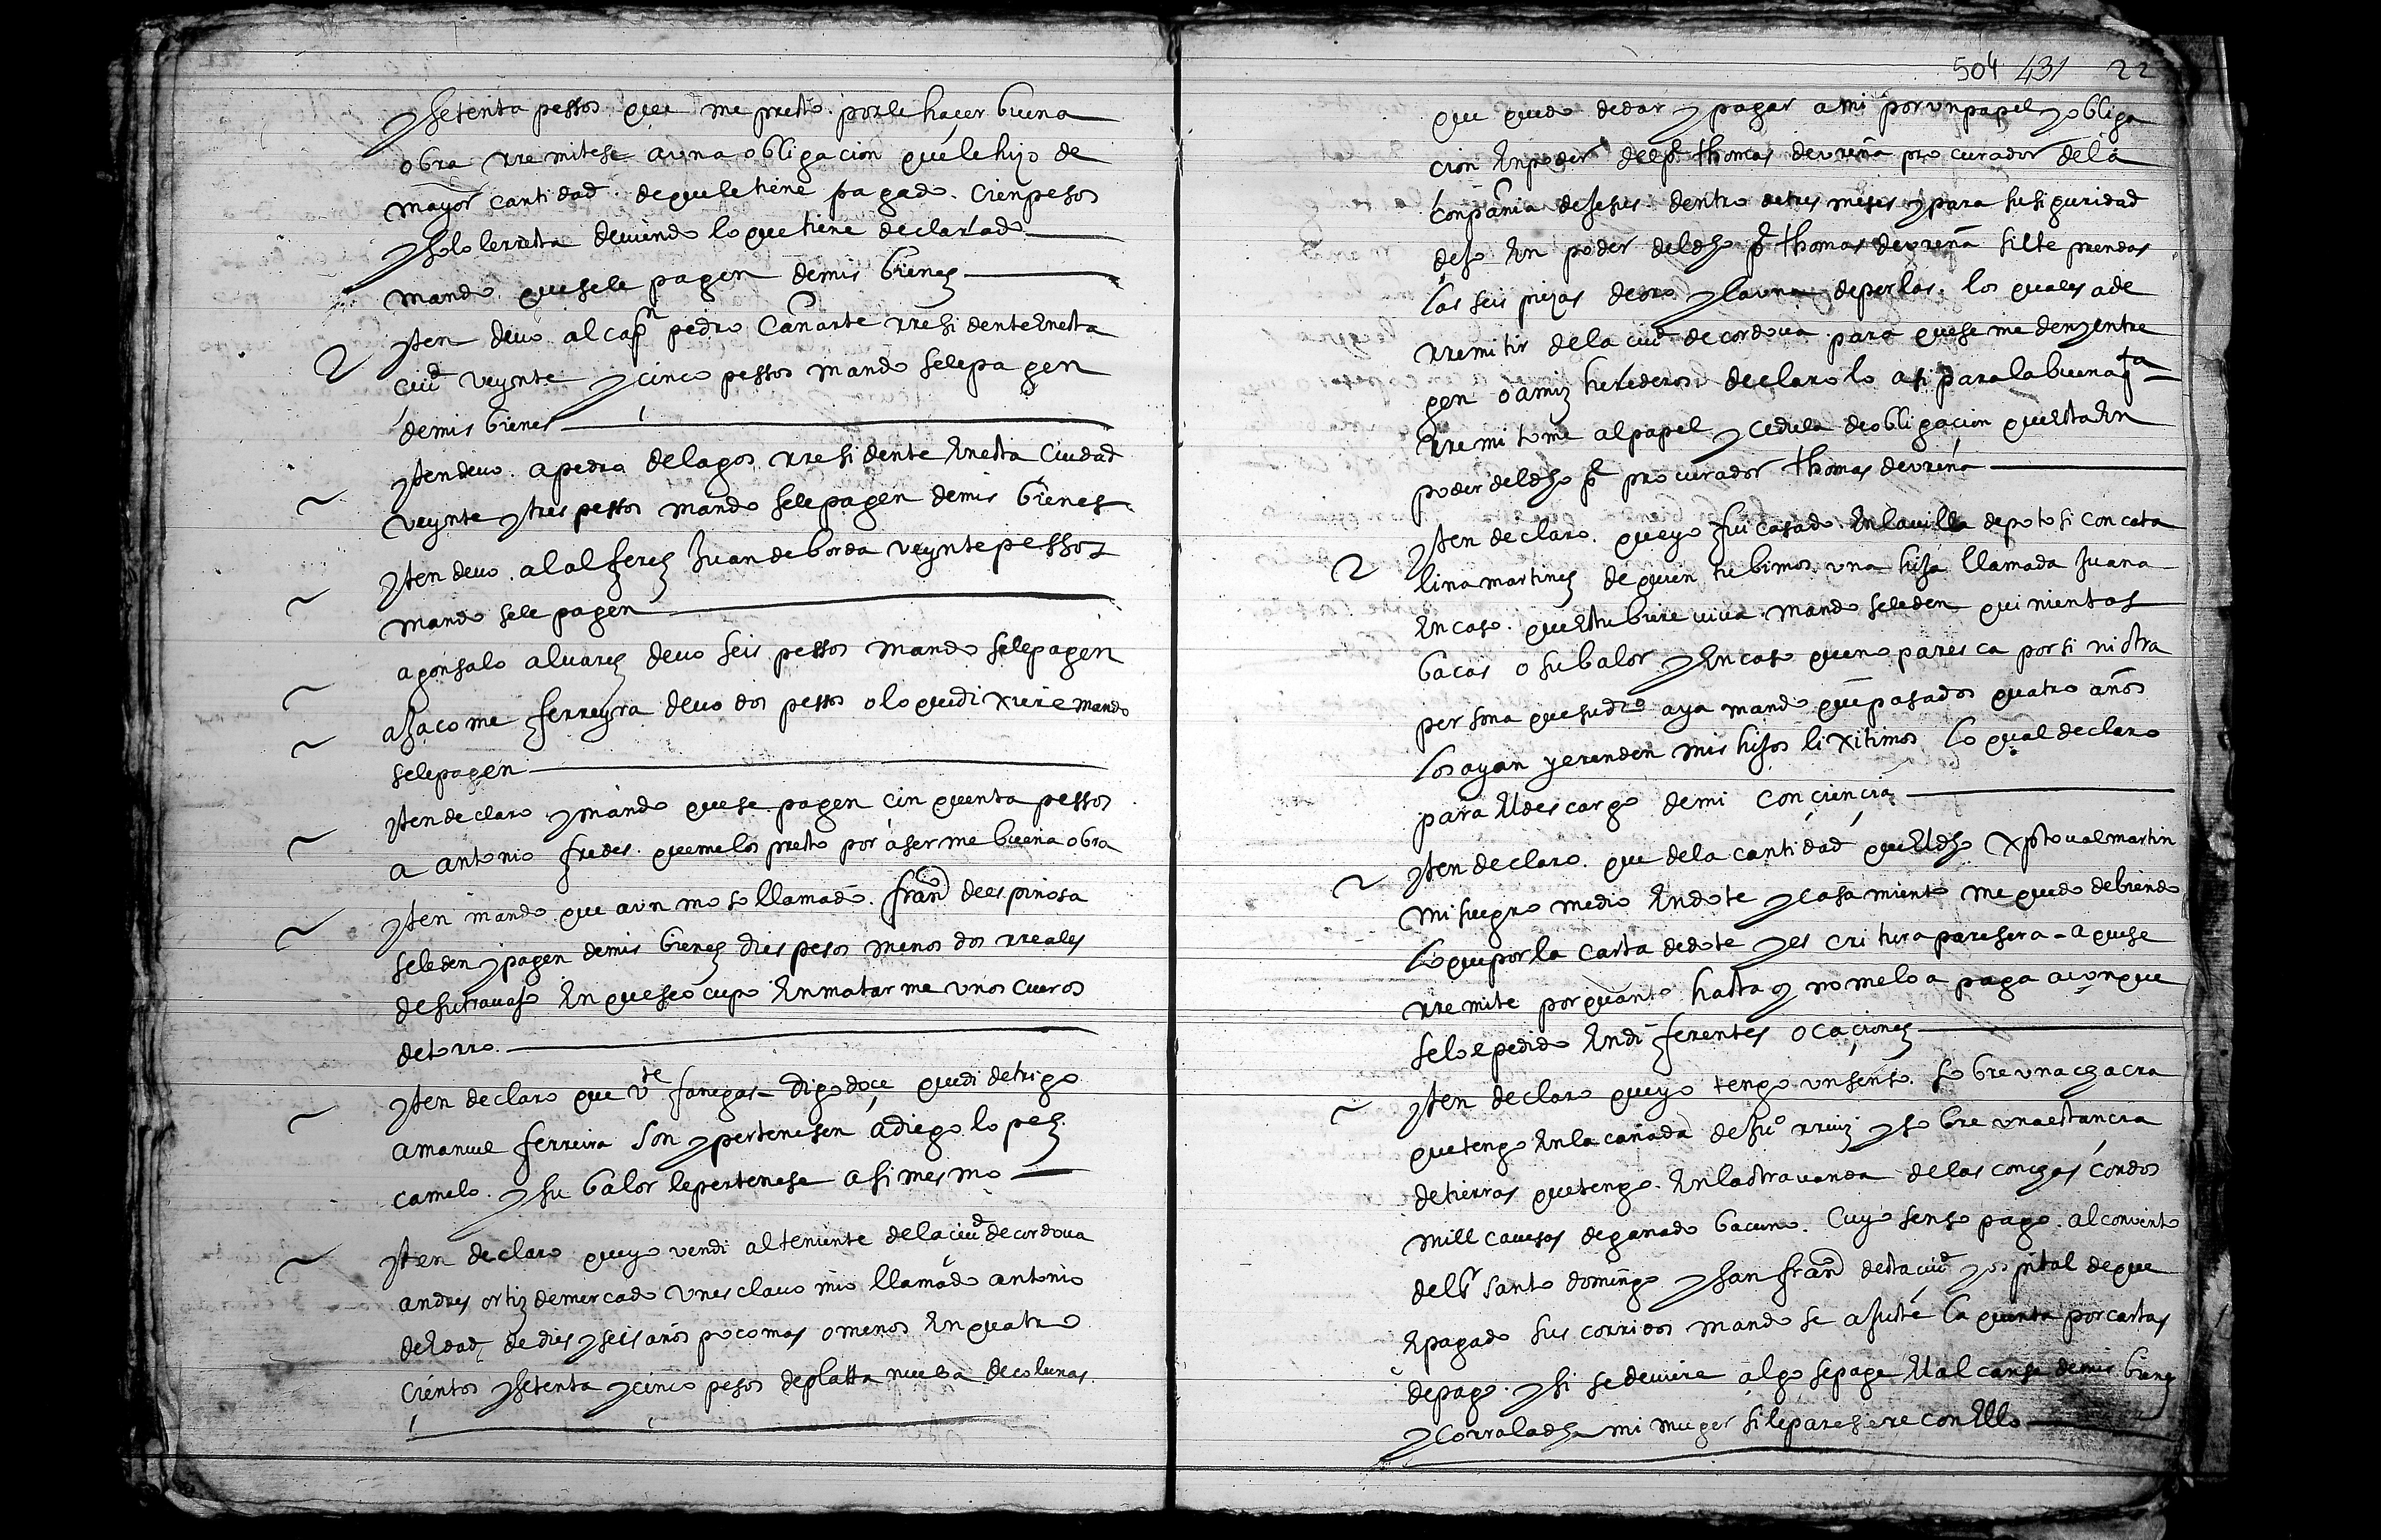 y setenta pessos que me presto por le hacer buena
obra rremitese a una obligacion que le hizo de
mayor cantidad de que le tiene pagado cien pesos
y solo le rresta deviendo lo que tiene declarado
mando que se le pagen de mis bienes
yten devo al capn pedro Cañarte rresidente en esta
ciud veynte y cinco pessos mando se le pagen
de mis bienes
yten devo a pedro de lagos rresidente en esta Ciudad
veynte y tres pessos mando se le pagen de mis bienes
yten devo al alferez Juan de borda veynte pessos
mando se le pagen
a gonsalo alvarez devo seis pessos mando se le pagen
a Jacome ferreyra devo dos pessos o lo que dixere mando
se le pagen
yten declaro y mando que se pagen cinquenta pessos
a antonio fredes que me los presto por aserme buena obra
yten mando que a un moso llamado franco de espinosa
se le den y pagen de mis bienes dies pesos menos dos rreales
de su travajo en que se ocupo en matarme unos cueros
de torro
yten declaro que vte fanegas digo doce que di de trigo
a manuel ferreira son y pertenesen a diego lopez
camelo y su balor le pertenese asi mesmo
yten declaro que yo vendi al teniente de la ciud de cordova
andres ortiz de mercado un esclavo mio llamado antonio
de edad de dies y seis años poco mas o menos en quatro
cientos y setenta y cinco pesos de platta nueba de colunas
504 431 22
que quedo de dar y pagar a mi por un papel y obliga
cion en poder del pe thomas de ureña procurador de la
conpañia de Jesus dentro de tres meses y para su siguridad
dejo en poder del dho pe thomas de ureña siete prendas
las seis piezas de oro y la una de perlas los quales a de
rremitir de la ciud de cordova para que se me den y entre
gen o a mis herederos declarolo asi para la buena qta
rremitome al papel y cedula de obligacion que esta en
poder del dho pe procurador thomas de ureña
yten declaro que yo fui casado en la villa de potosi con cata
lina martinez de quien tubimos una hija llamada Juana
en caso que estubiere viva mando se le den quinientas
bacas o su balor y en caso que no paresca por si ni otra
persona que su dro aya mando que pasados quatro años
los ayan y ereden mis hijos lixitimos lo qual declaro
para el descargo de mi conciencia
yten declaro que de la cantidad que el dho xptoval martin
mi suegro me dio en dote y casamiento me quedo debiendo
lo que por la carta de dote y escritura paresera a que se
rremite por quanto hasta oy no me lo a paga aunque
se lo e pedido en diferentes ocaciones
yten declaro que yo tengo un senso sobre una chacra
que tengo en la cañada de Juo rruiz y sobre una estancia
de tierras que tengo en la otra vanda de las conchas con dos
mill cavesas de ganado bacuno Cuyo senso pago al convento
del Sr santo domingo y san franco desta ciud y ospital de que
e pagado sus corridos mando se ajuste la quenta por cartas
de pago y si se deviere algo se page el alcanse de mis bienes
y corra la dha mi muger si le paresiere con ello